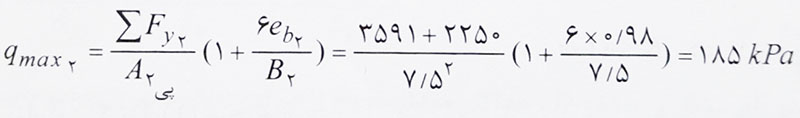 q_max۲ = ΣF_y۲ / A_۲پی (۱ + ۶e_b۲ / B_۲) = ۳۵۹۱ + ۲۲۵۰ / ۷/۵^۲ (۱ + ۶ × ۰/۹۸ / ۷/۵) = ۱۸۵ kPa